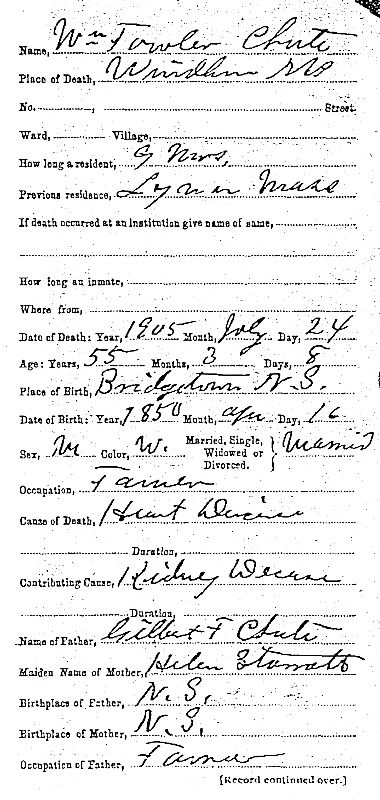 Name, Wm Fowler Chute
Place of Death, Windham Me
No. , Street.
Ward, Village,
How long a resident, 9 Mos,
Previous residence, Lynn Mass
If death occurred at an institution give name of same,
How long an inmate,
Where from,
Date of Death: Year, 1905 Month, July Day, 24
Age: Years, 55 Months, 3 Days, 8
Place of Birth, Bridgetown N.S.
Date of Birth: Year, 1850 Month, Apr Day, 16
Sex, M Color, W. Married, Single, Widowed or Divorced. } Married
Occupation, Farmer
Cause of Death, Heart Decise
Duration,
Contributing Cause, Kidney Decease
Duration,
Name of Father, Gilbert F Chute
Maiden Name of Mother, Helen Starratt
Birthplace of Father, N.S.
Birthplace of Mother, N.S.
Occupation of Father, Farmer
[Record continued over.]